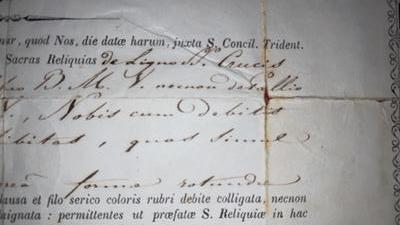 quod Nos, die datæ harum, juxta S. Concil. Trident.
Sacras Reliquias de Ligno Ss. Crucis
B. M. V. necnon de Pallio
, Nobis cum debitis
, quas simul
forma rotunda
ausa et filo serico coloris rubri debite colligata, necnon
signata : permittentes ut præfatæ S. Reliquiæ in hac